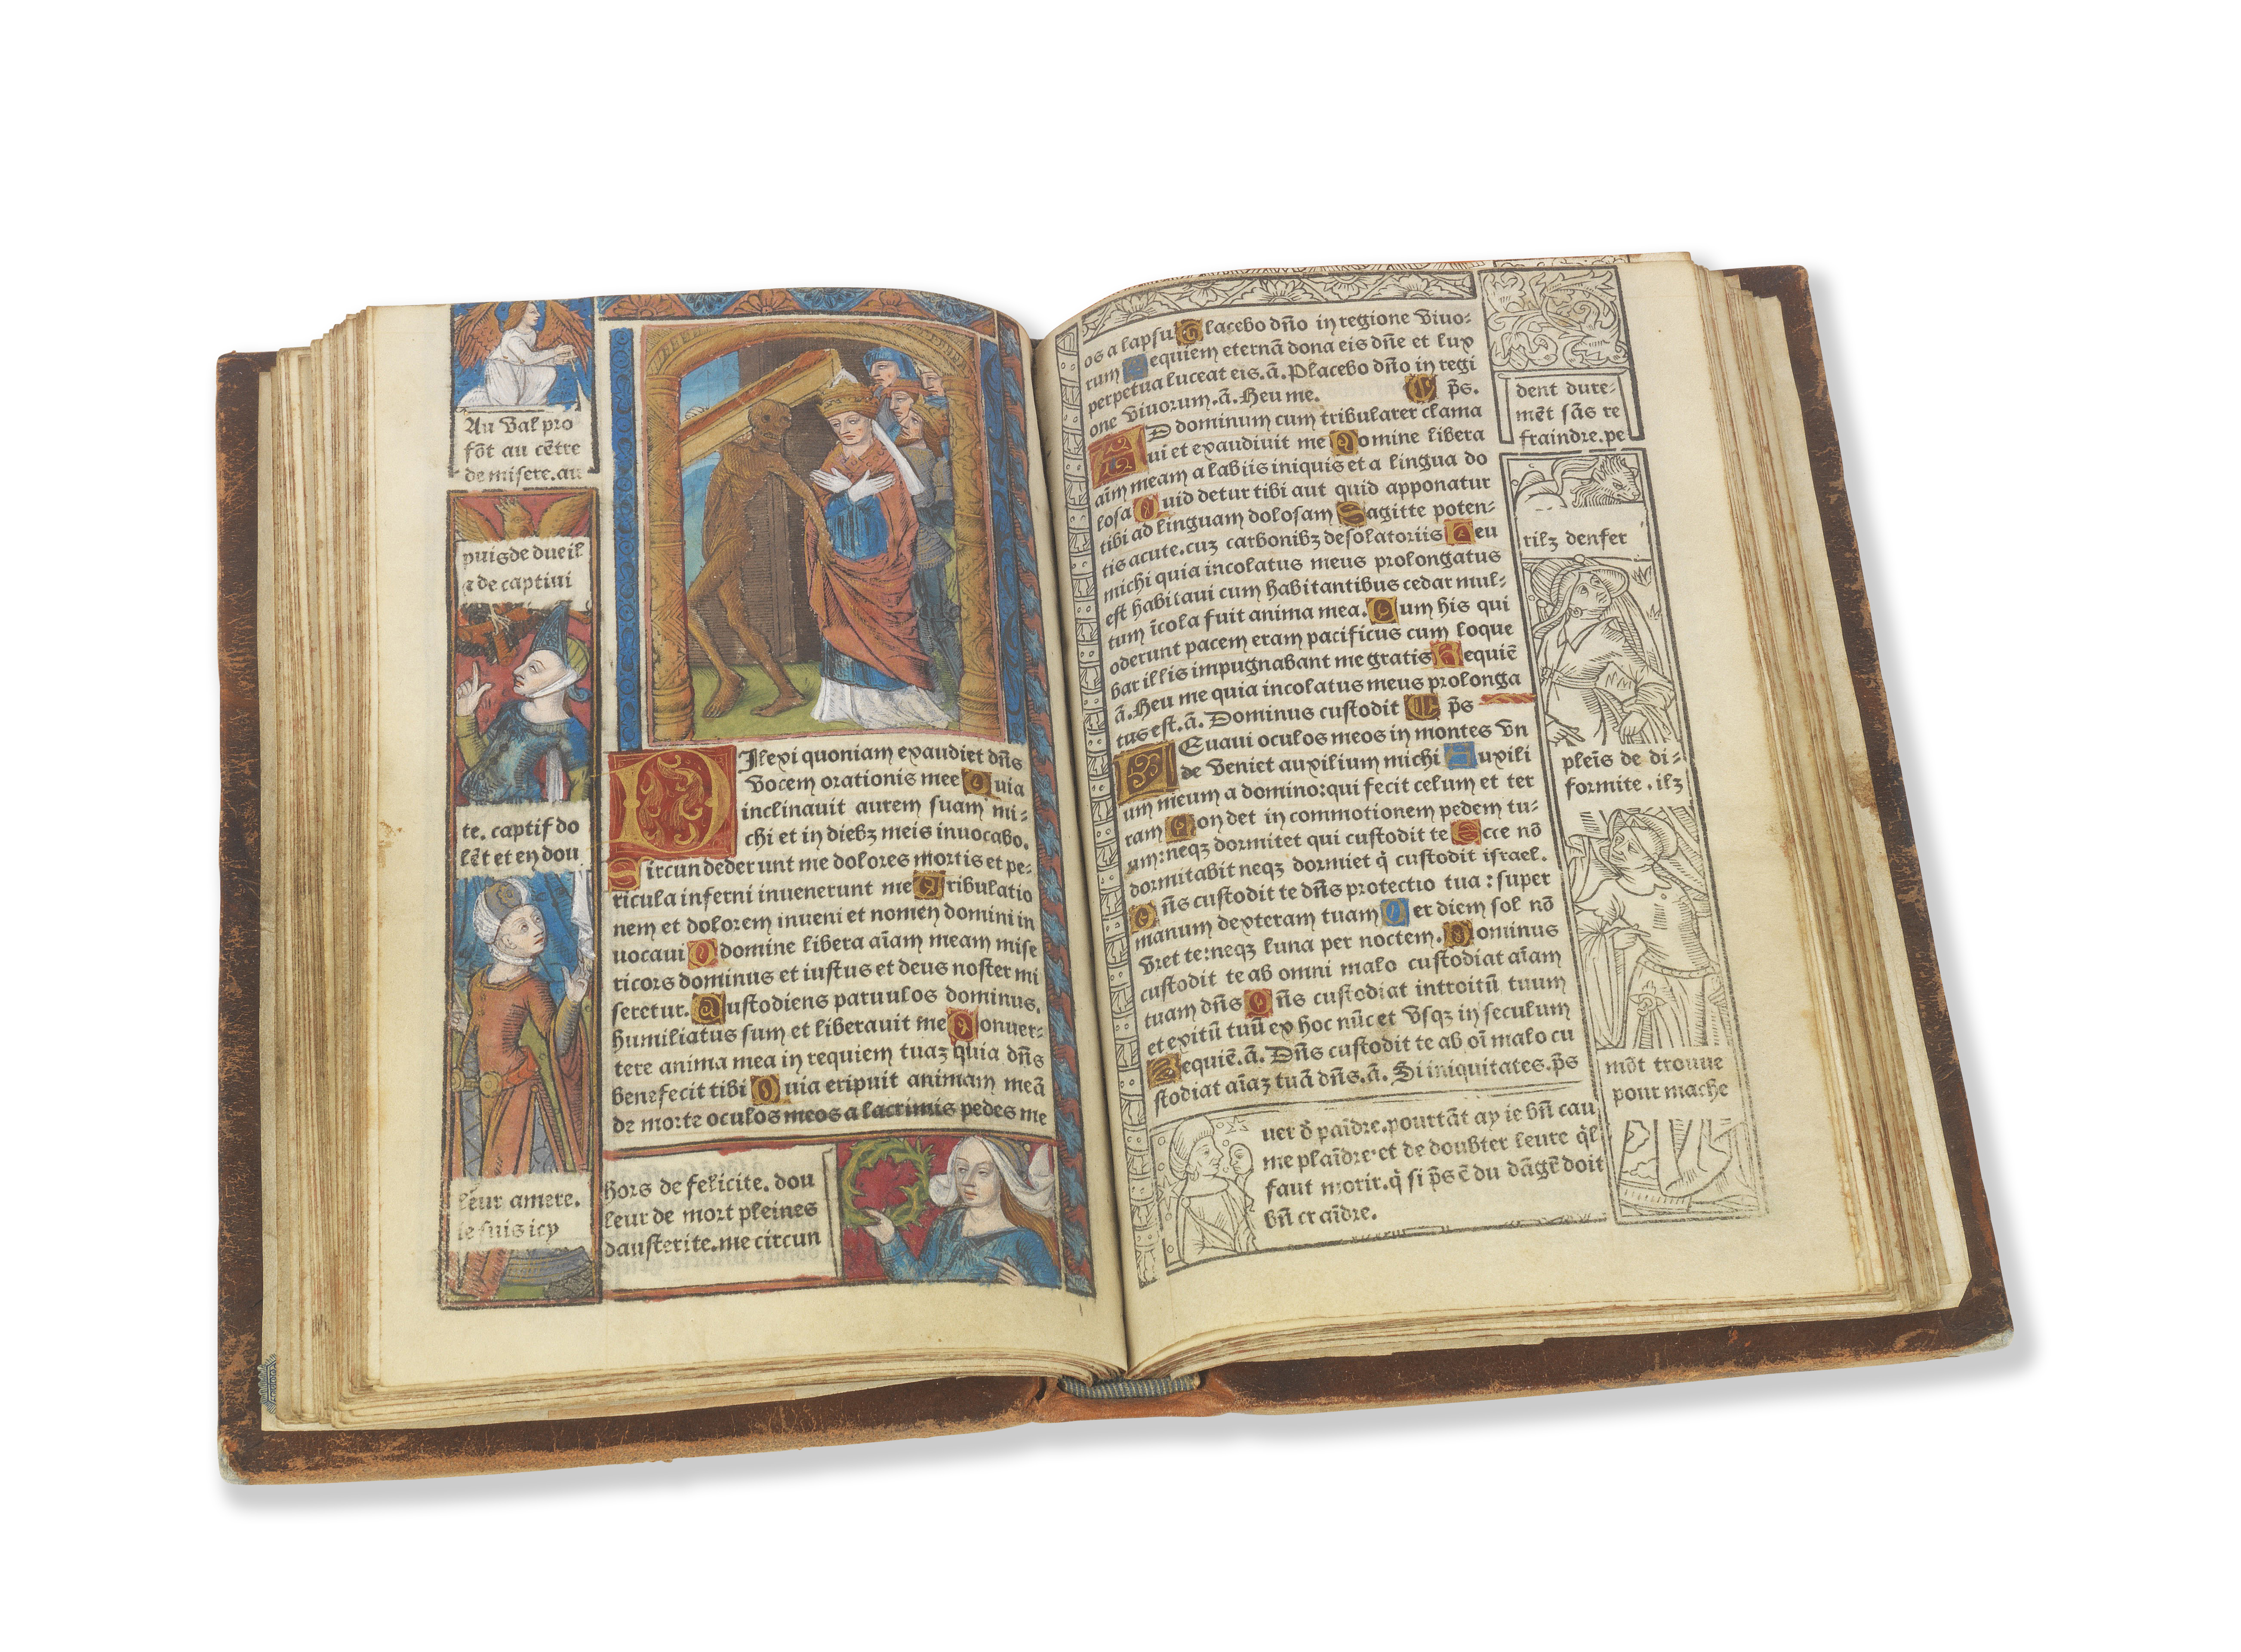 Au val pro
fōt au cētre
de misere. au
puis de dueil
⁊ de captiui
te. captif do
lēt et en dou
leur amere.
ie suis icy
Dilexi quoniam exaudiet dn̄s
vocem orationis mee Quia
inclinauit aurem suam mi-
chi et in diebꝫ meis inuocabo.
Circundederunt me dolores mortis et pe-
ricula inferni inuenerunt me Tribulatio
nem et dolorem inueni et nomen domini in
uocaui O domine libera aīam meam mise
ricors dominus et iustus et deus noster mi
seretur. Custodiens paruulos dominus.
humiliatus sum et liberauit me Conuer-
tere anima mea in requiem tuaꝫ quia dn̄s
benefecit tibi Quia eripuit animam meā
de morte oculos meos a lacrimis pedes me
hors de felicite. dou
leur de mort pleines
dausterite. me circun
os a lapsu Placebo dn̄o in regione viuo-
rum Requiem eternā dona eis dn̄e et lux
perpetua luceat eis. ā. Placebo dn̄o in regi
one viuorum. ā. Heu me. p̄s.
AD dominum cum tribularer clama
ui et exaudiuit me Domine libera
aīm meam a labiis iniquis et a lingua do
losa Quid detur tibi aut quid apponatur
tibi ad linguam dolosam Sagitte poten-
tis acute. cuꝫ carbonibꝫ desolatoriis Heu
michi quia incolatus meus prolongatus
est habitaui cum habitantibus cedar mul-
tum īcola fuit anima mea. Cum his qui
oderunt pacem eram pacificus cum loque
bar illis impugnabant me gratis Requiē
ā. Heu me quia incolatus meus prolonga
tus est. ā. Dominus custodit p̄s
LEuaui oculos meos in montes vn
de veniet auxilium michi Auxili
um meum a domino: qui fecit celum et ter
ram Non det in commotionem pedem tu-
um: neqꝫ dormitet qui custodit te Ecce nō
dormitabit neqꝫ dormiet q̄ custodit israel.
Dn̄s custodit te dn̄s protectio tua: super
manum dexteram tuam Per diem sol nō
vret te: neqꝫ luna per noctem. Dominus
custodit te ab omni malo custodiat aīam
tuam dn̄s Dn̄s custodiat introitū tuum
et exitū tuū ex hoc nūc et vsqꝫ in seculum
Requiē. ā. Dn̄s custodit te ab oī malo cu
stodiat aīaꝫ tuā dn̄s. ā. Si iniquitates. p̄s
dent dure-
mēt sās re
fraindre. pe
rilꝫ denfer
pleīs de di-
formite. ilꝫ
mōt trouue
pour mache
uer ⁊ paīdre. pourtāt ay ie bn̄ cau
me plaīdre. et de doubter leure q̄l
faut morir. q̄ si p̄s ē du dāgē doit
bn̄ craīdre.